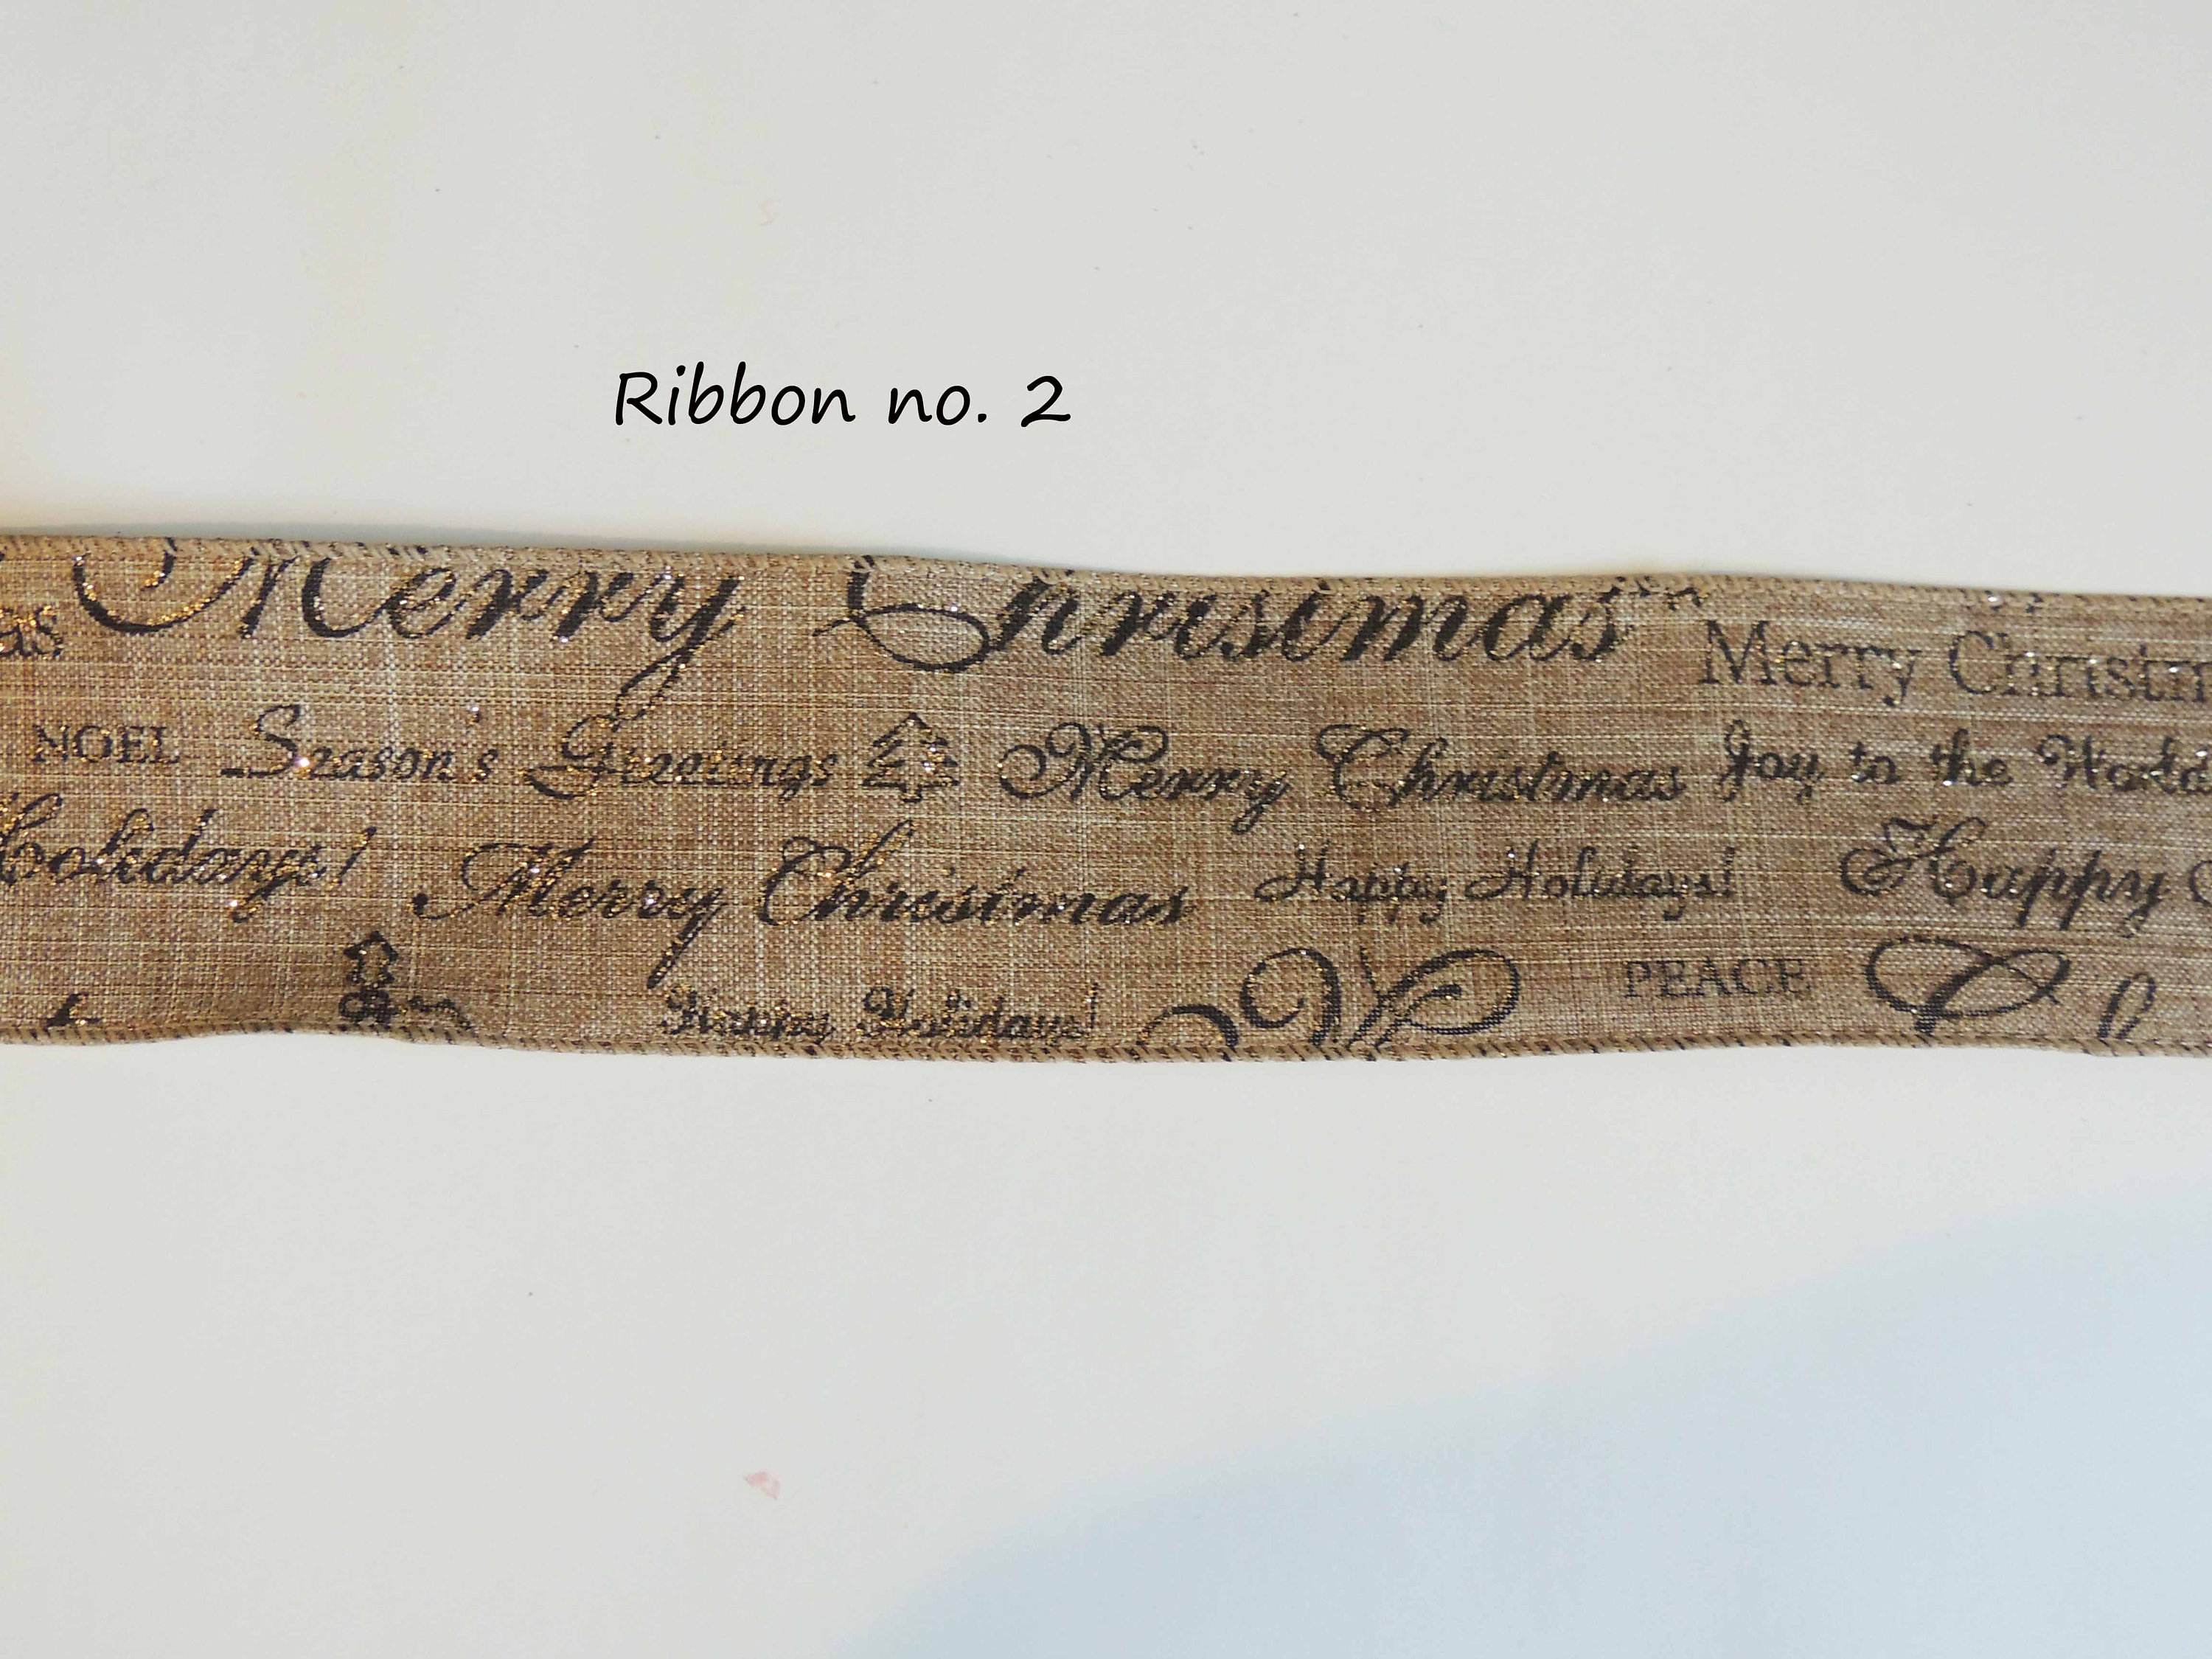 Ribbon no. 2
Merry Christmas
as Merry Christm
NOEL Season's Greetings Merry Christmas Joy to the World
Holidays! Merry Christmas Happy Holidays! Happy
PEACE
Happy Holidays!